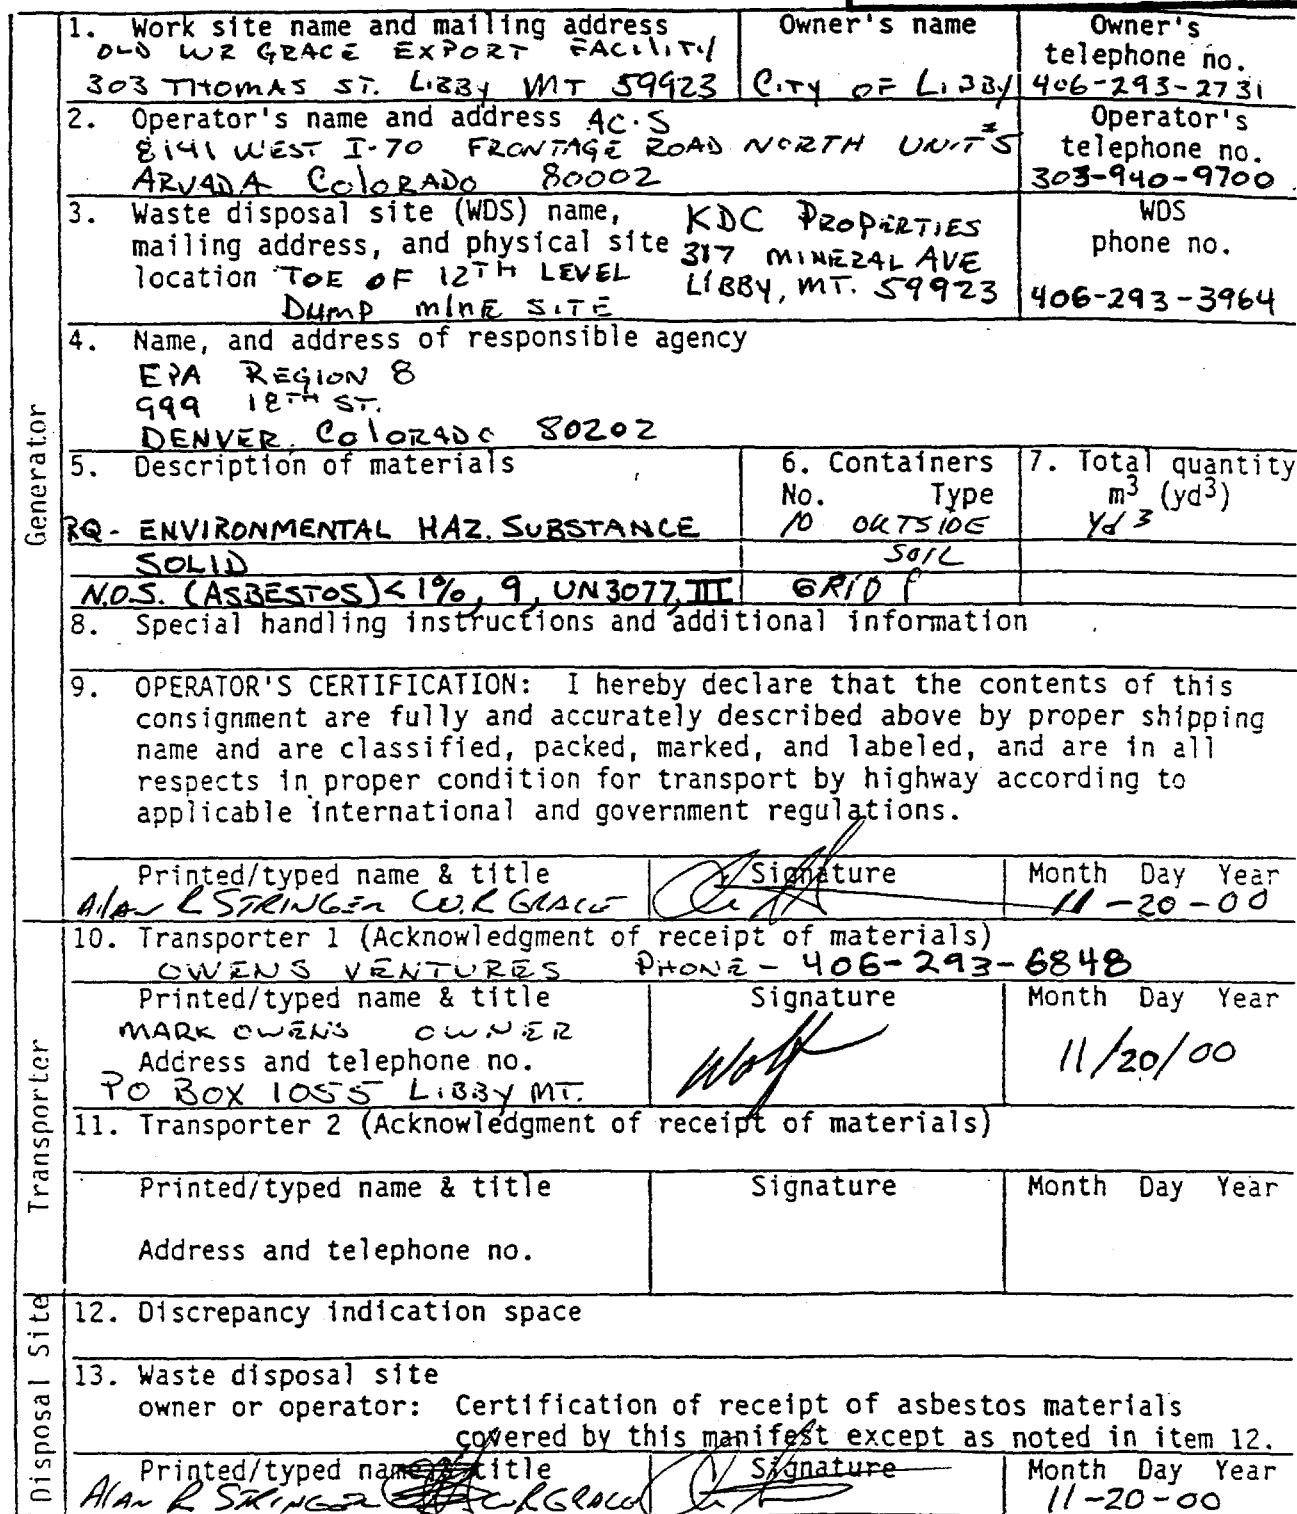 Generator
1. Work site name and mailing address
OLD WR GRACE EXPORT FACILITY
303 THOMAS ST. LIBBY MT 59923
Owner's name
CITY OF LIBBY
Owner's
telephone no.
406-293-2731
2. Operator's name and address AC·S
8141 WEST I-70 FRONTAGE ROAD NORTH UNIT #5
ARVADA COLORADO 80002
Operator's
telephone no.
303-940-9700
3. Waste disposal site (WDS) name,
mailing address, and physical site
location TOE OF 12TH LEVEL
DUMP MINE SITE
KDC PROPERTIES
317 MINERAL AVE
LIBBY, MT. 59923
WDS
phone no.
406-293-3964
4. Name, and address of responsible agency
EPA REGION 8
999 18TH ST.
DENVER, COLORADO 80202
5. Description of materials
RQ- ENVIRONMENTAL HAZ. SUBSTANCE
SOLID
N.O.S. (ASBESTOS) < 1%, 9, UN3077, III
6. Containers
No. Type
10 OUTSIDE
SOIL
GRID
7. Total quantity
m3 (yd3)
Yd 3
8. Special handling instructions and additional information
9. OPERATOR'S CERTIFICATION: I hereby declare that the contents of this
consignment are fully and accurately described above by proper shipping
name and are classified, packed, marked, and labeled, and are in all
respects in proper condition for transport by highway according to
applicable international and government regulations.
Printed/typed name & title
Alan R STRINGER W.R GRACE
Signature
Month Day Year
11-20-00
Transporter
10. Transporter 1 (Acknowledgment of receipt of materials)
OWENS VENTURES PHONE - 406-293-6848
Printed/typed name & title
MARK OWENS OWNER
Address and telephone no.
PO BOX 1055 LIBBY MT.
Signature
Month Day Year
11/20/00
11. Transporter 2 (Acknowledgment of receipt of materials)
Printed/typed name & title
Signature
Month Day Year
Address and telephone no.
Disposal Site
12. Discrepancy indication space
13. Waste disposal site
owner or operator: Certification of receipt of asbestos materials
covered by this manifest except as noted in item 12.
Printed/typed name & title
Alan R STRINGER WR GRACE
Signature
Month Day Year
11-20-00